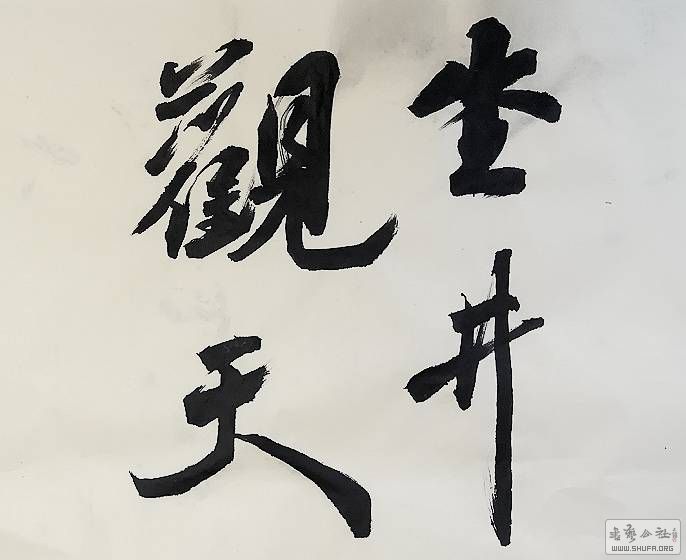 坐井
觀天
书艺公社
WWW.SHUFA.ORG